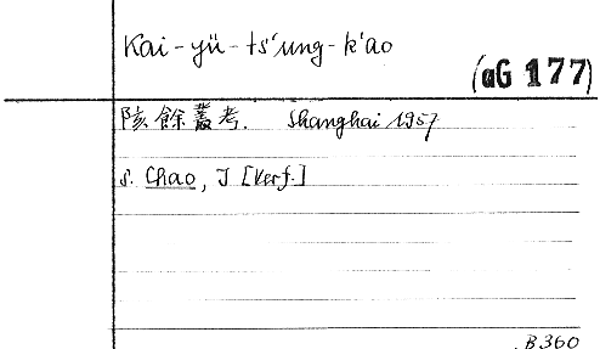 Kai-yü-ts'ung-k'ao
(aG 177)
陔餘叢考. Shanghai 1957
s. Chao, I [Verf.]
B360